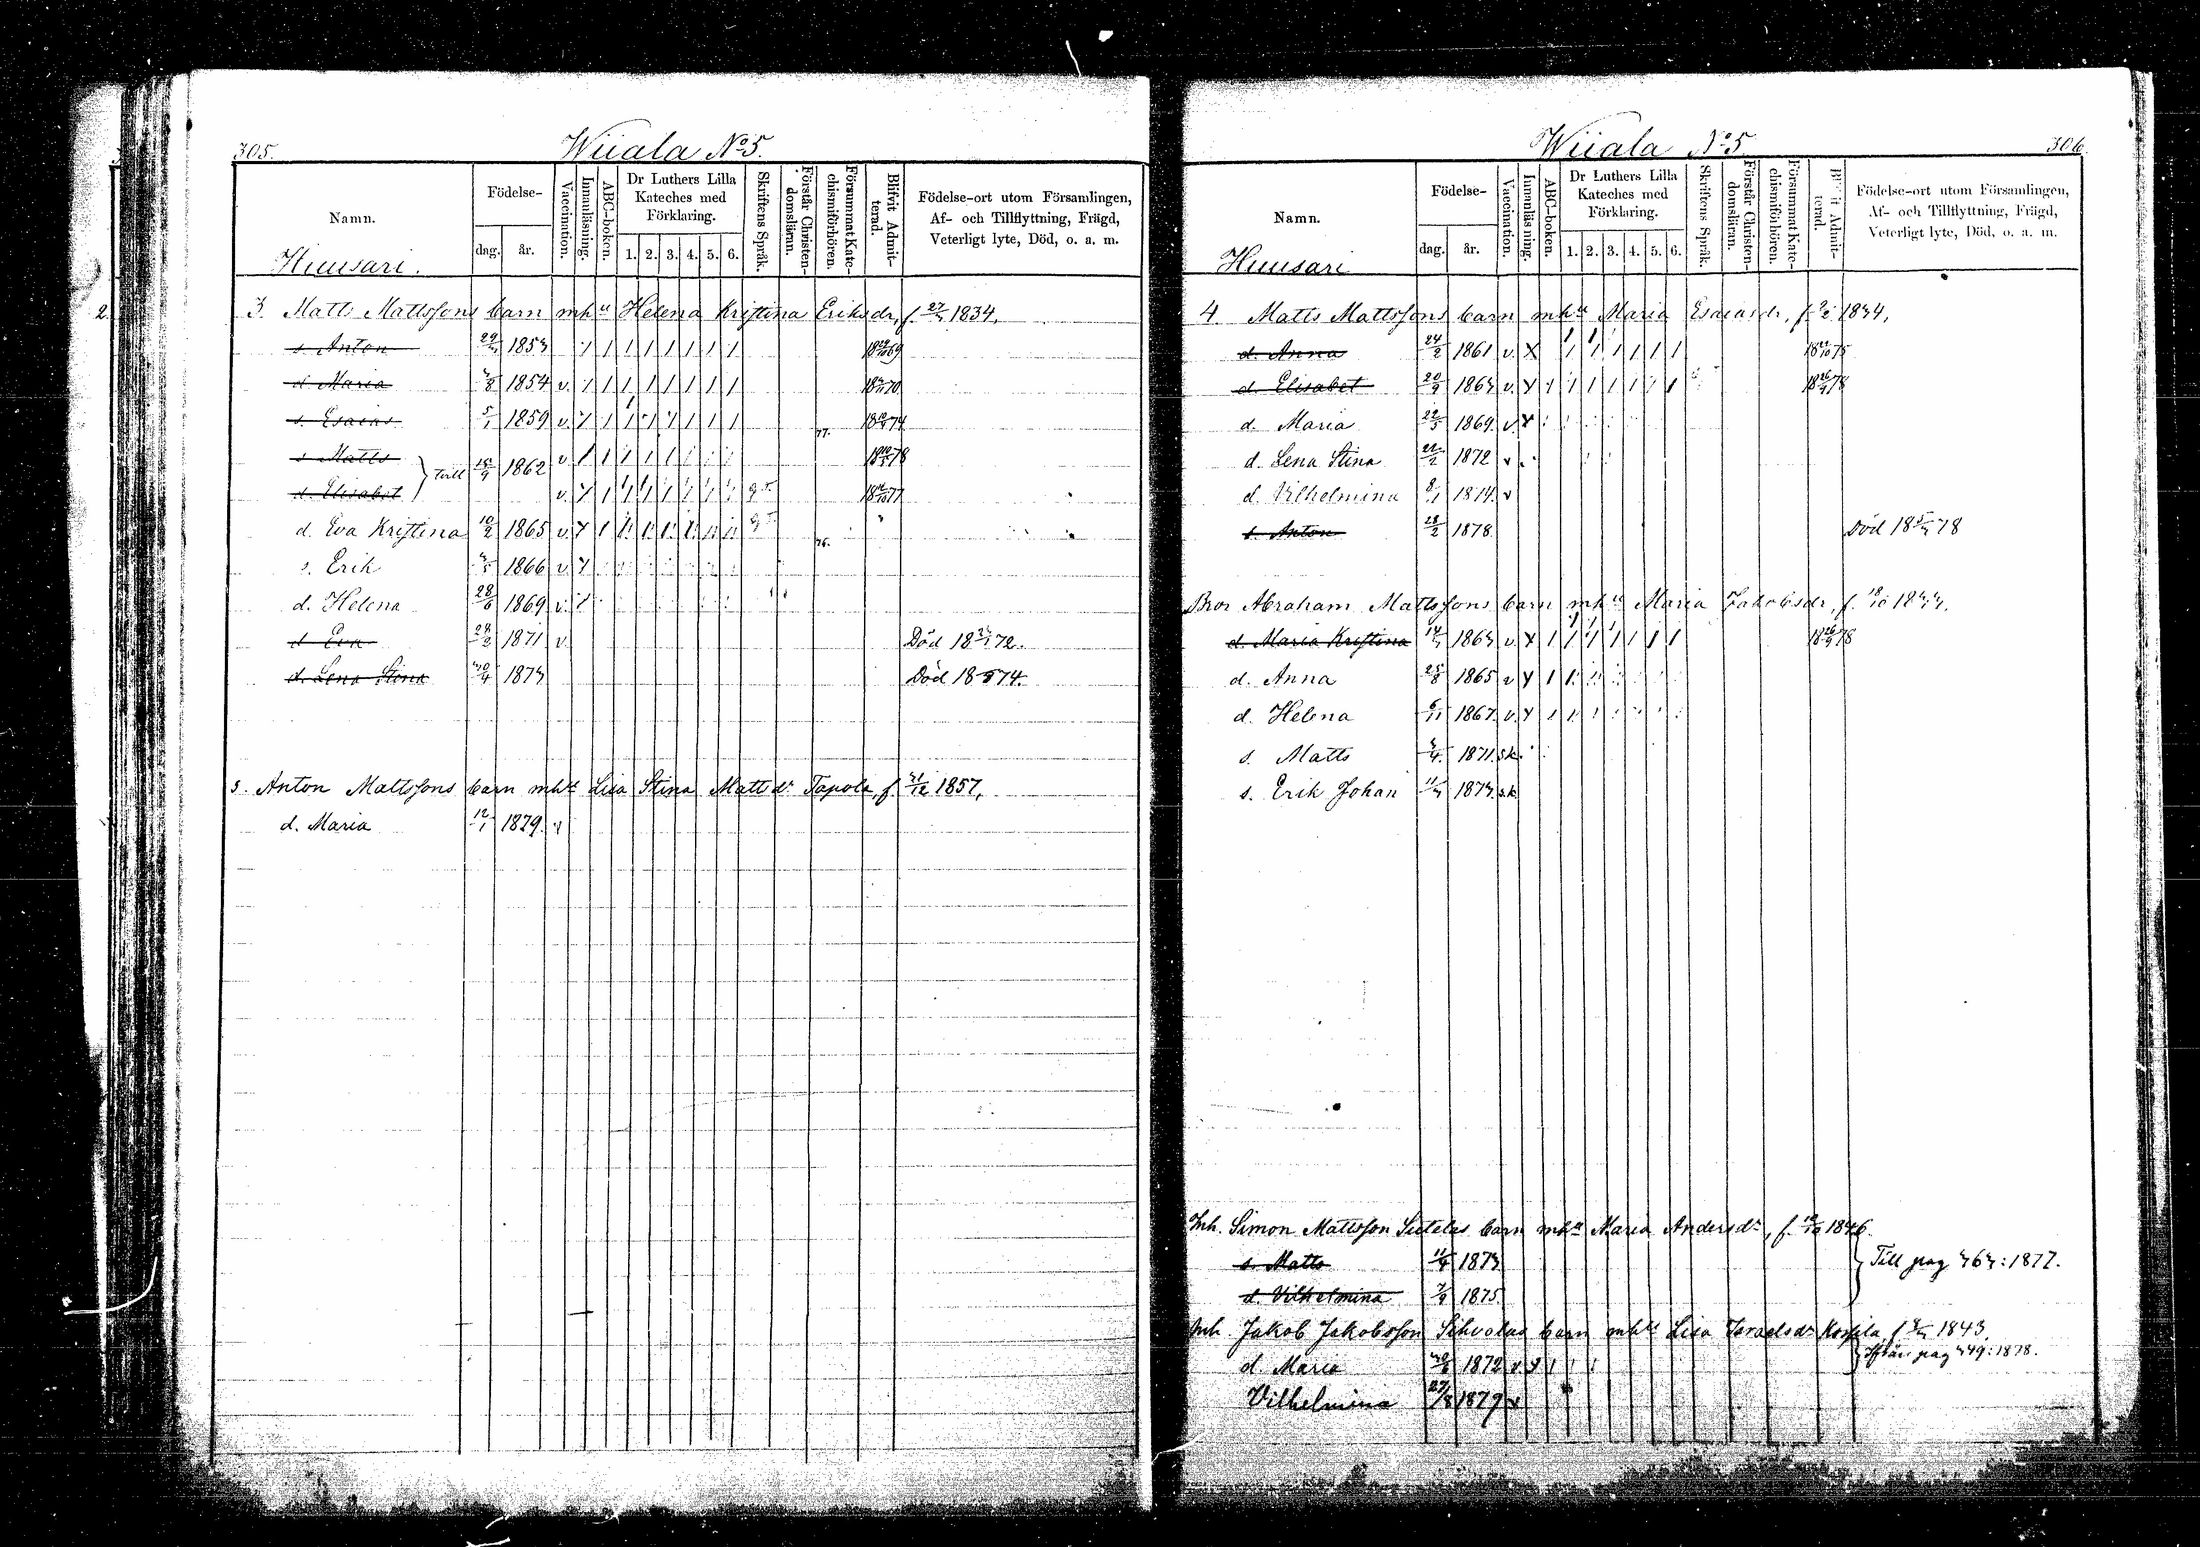 305.
Wiiala No 5.
Namn.
Födelse-
dag.
år.
Vaccination.
Innanläsning.
ABC-boken.
Dr Luthers Lilla
Kateches med
Förklaring.
1. 2. 3. 4. 5. 6.
Skriftens Språk.
Förstår Christen-
domsläran.
Försummat Kate-
chismiförhören.
Blifvit Admit-
terad.
Födelse-ort utom Församlingen,
Af- och Tillflyttning, Frägd,
Veterligt lyte, Död, o. a. m.
Huusari.
2
3. Matts Mattssons barn mhu Helena Kristina Eriksdr, f. 1834,
s. Anton 1853 69
d. Maria 1854 v. 70
s. Esaias 5/1 1859 v. 74
77.
s. Matts v 78
tvill 1862
d. Elisabet v. 77
d. Eva Kristina 10/2 1865 v.
76.
s. Erik 1866 v
d. Helena 28/6 1869 v.
d. Eva 1871 v. Död 72.
d. Lena Stina 30/4 1873 Död 18 74.
s. Anton Mattssons barn mht Lisa Stina Mattsdr Tapola, f. 31/12 1857,
d. Maria 12/1 1879. v
Wiiala No 5
306.
Namn.
Födelse-
dag.
år.
Vaccination.
Innanläsning.
ABC-boken.
Dr Luthers Lilla
Kateches med
Förklaring.
1. 2. 3. 4. 5. 6.
Skriftens Språk.
Förstår Christen-
domsläran.
Försummat Kate-
chismiförhören.
Admit-
terad.
Födelse-ort utom Församlingen,
Af- och Tillflyttning, Frägd,
Veterligt lyte, Död, o. a. m.
Huusari
4 Matts Mattssons barn mhu Maria Esaiasdr, f. 1834,
d. Anna 24/2 1861 v. X 75
d. Elisabet 20/9 1863 v. 18 26/9 78
d. Maria 22/5 1869. v
d. Lena Stina 1872 v.
d. Vilhelmina 8/1 1874. v
s. Anton 28/2 1878. Död 78
Bror Abraham Mattssons barn mhu Maria Jakobsdr, f. 18/10
d. Maria Kristina 1863 v. 18 26/9 78
d. Anna 25/8 1865 v
d. Helena 6/11 1867. v.
s. Matts 3/4 1871. s.k.
s. Erik Johan 11/3 1873. s.k.
Inh. Simon Mattsson Sutelas barn mht Maria Andersdr, f. 1846
s. Matts 11/4 1873
Till pag 363: 1877.
d. Vilhelmina 7/9 1875
Inh. Jakob Jakobsson Sihvolas barn mht Lisa Israelsdr f. 1843.
Ifrån pag 349: 1878.
d. Maria 1872 v
Vilhelmina 27/8 1879 v